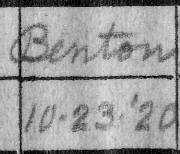 Benton
10-23-'20